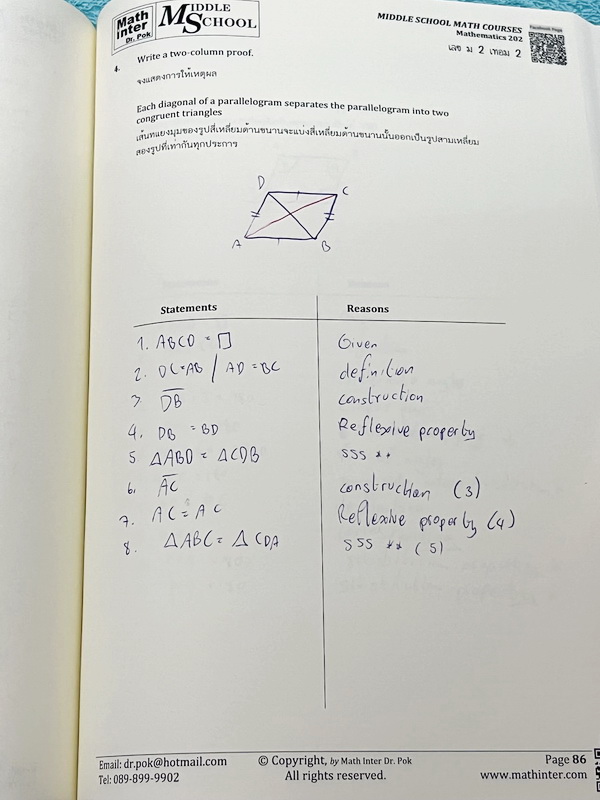 Math Inter Dr. Pok
MIDDLE SCHOOL
MIDDLE SCHOOL MATH COURSES
Mathematics 202
เลข ม 2 เทอม 2
Facebook Page
4. Write a two-column proof.
จงแสดงการให้เหตุผล
Each diagonal of a parallelogram separates the parallelogram into two
congruent triangles
เส้นทแยงมุมของรูปสี่เหลี่ยมด้านขนานจะแบ่งสี่เหลี่ยมด้านขนานนั้นออกเป็นรูปสามเหลี่ยม
สองรูปที่เท่ากันทุกประการ
D C
A B
Statements Reasons
1. ABCD = ▱ Given
2. DC=AB / AD=BC definition
3. DB construction
4. DB = BD Reflexive property
5 ΔABD = ΔCDB SSS **
6. AC construction (3)
7. AC = AC Reflexive property (4)
8. ΔABC = ΔCDA SSS ** (5)
Email: dr.pok@hotmail.com © Copyright, by Math Inter Dr. Pok Page 86
Tel: 089-899-9902 All rights reserved. www.mathinter.com